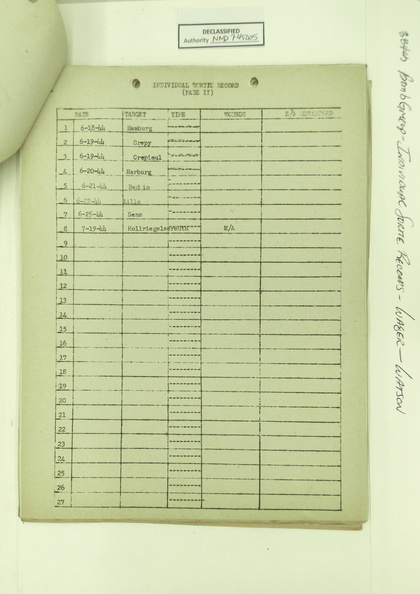 DECLASSIFIED
Authority NND 745005
INDIVIDUAL SORTIE RECORD
(PAGE II)
DATE TARGET TIME WOUNDS E/A DESTROYED
1 6-18-44 Hamburg
2 6-19-44 Crepy
3 6-19-44 Crepieul
4 6-20-44 Harburg
5 6-21-44
6 6-22-44 Lille
7 6-25-44 Sens
8 7-19-44 Hollriegels N/A
9
10
11
12
13
14
15
16
17
18
19
20
21
22
23
24
25
26
27
Bomb Group - Individual Sortie Records - WAGER - WATSON